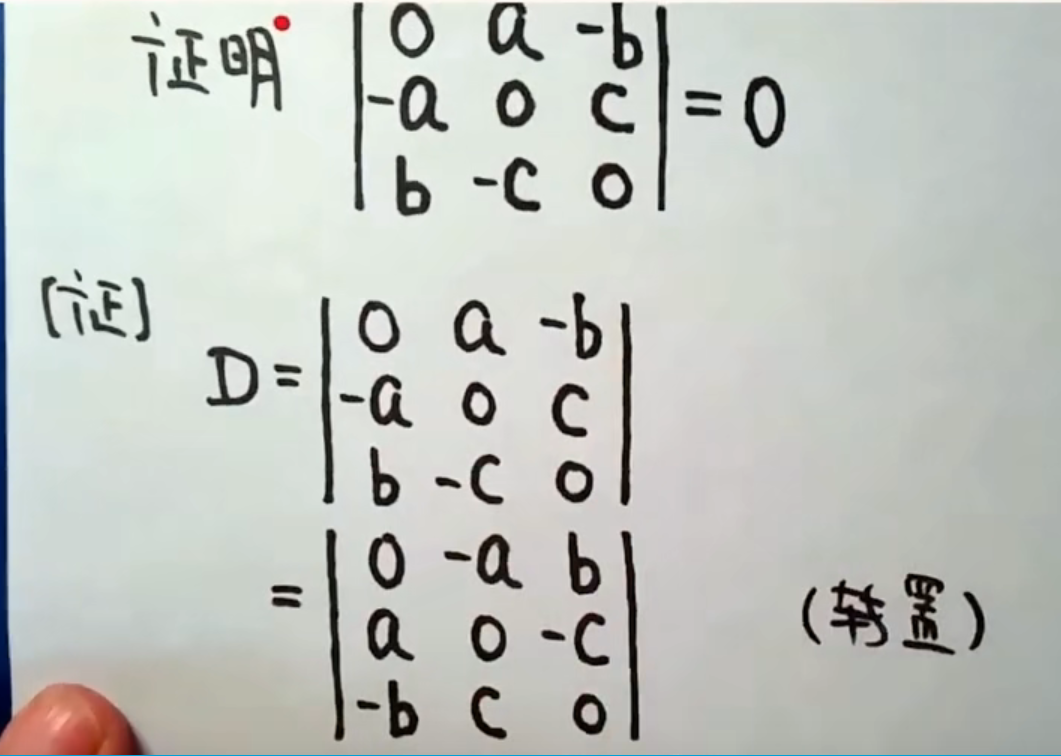 证明 | 0 a -b |
| -a 0 c | = 0
| b -c 0 |
[证]
D = | 0 a -b |
| -a 0 c |
| b -c 0 |
= | 0 -a b |
| a 0 -c | (转置)
| -b c 0 |